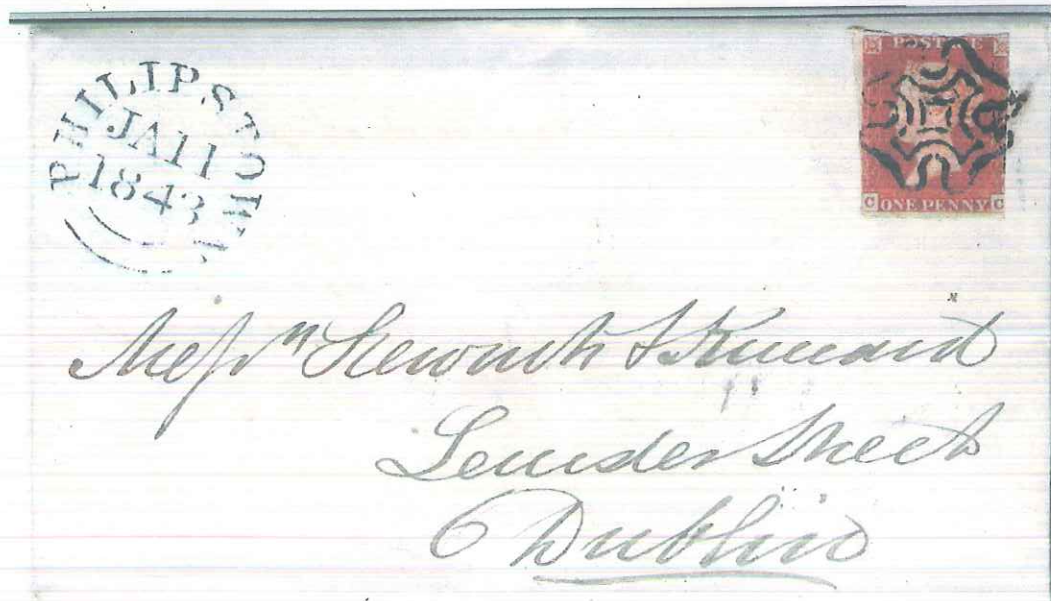 PHILIPSTOWN
JA 11
1843
POSTAGE
C ONE PENNY C
Messrs Stewarts & Kincaid
Leinster Street
6 Dublin